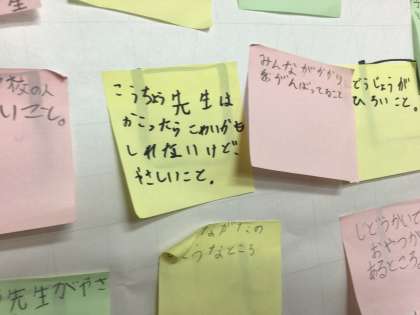 生
校の人
いこと。
こうちょう先生は
かこったらこわいかも
しれないけど
やさしいこと。
みんながかかり
をがんばってること
どうじょうが
ひろいこと。
ながたの
うなところ
しどうかいで
おやつが
あるところ。
先生がやさ